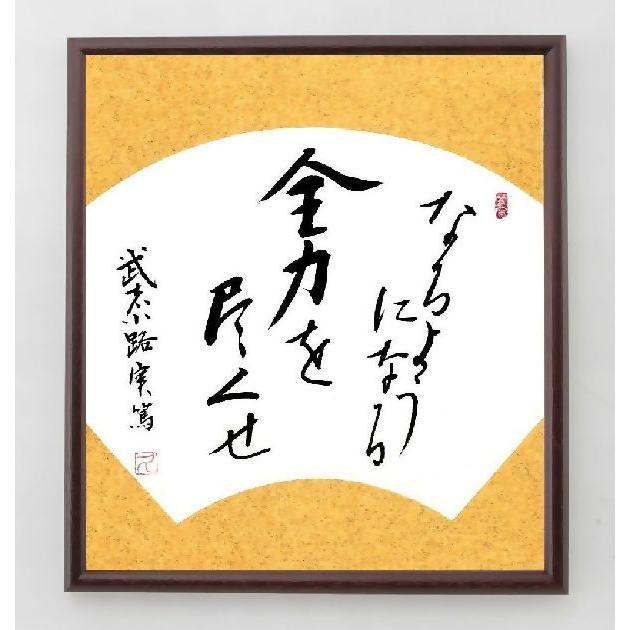 なるように
になる
全力を
尽くせ
武者小路実篤